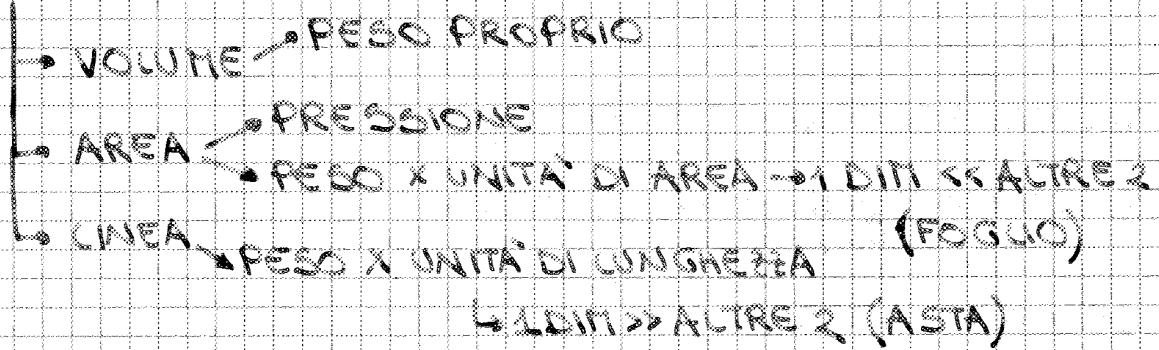 → VOLUME → PESO PROPRIO
→ AREA → PRESSIONE
→ PESO X UNITÀ DI AREA → 1 DIM << ALTRE 2
(FOGLIO)
→ LINEA → PESO X UNITÀ DI LUNGHEZZA
↳ 1 DIM >> ALTRE 2 (ASTA)